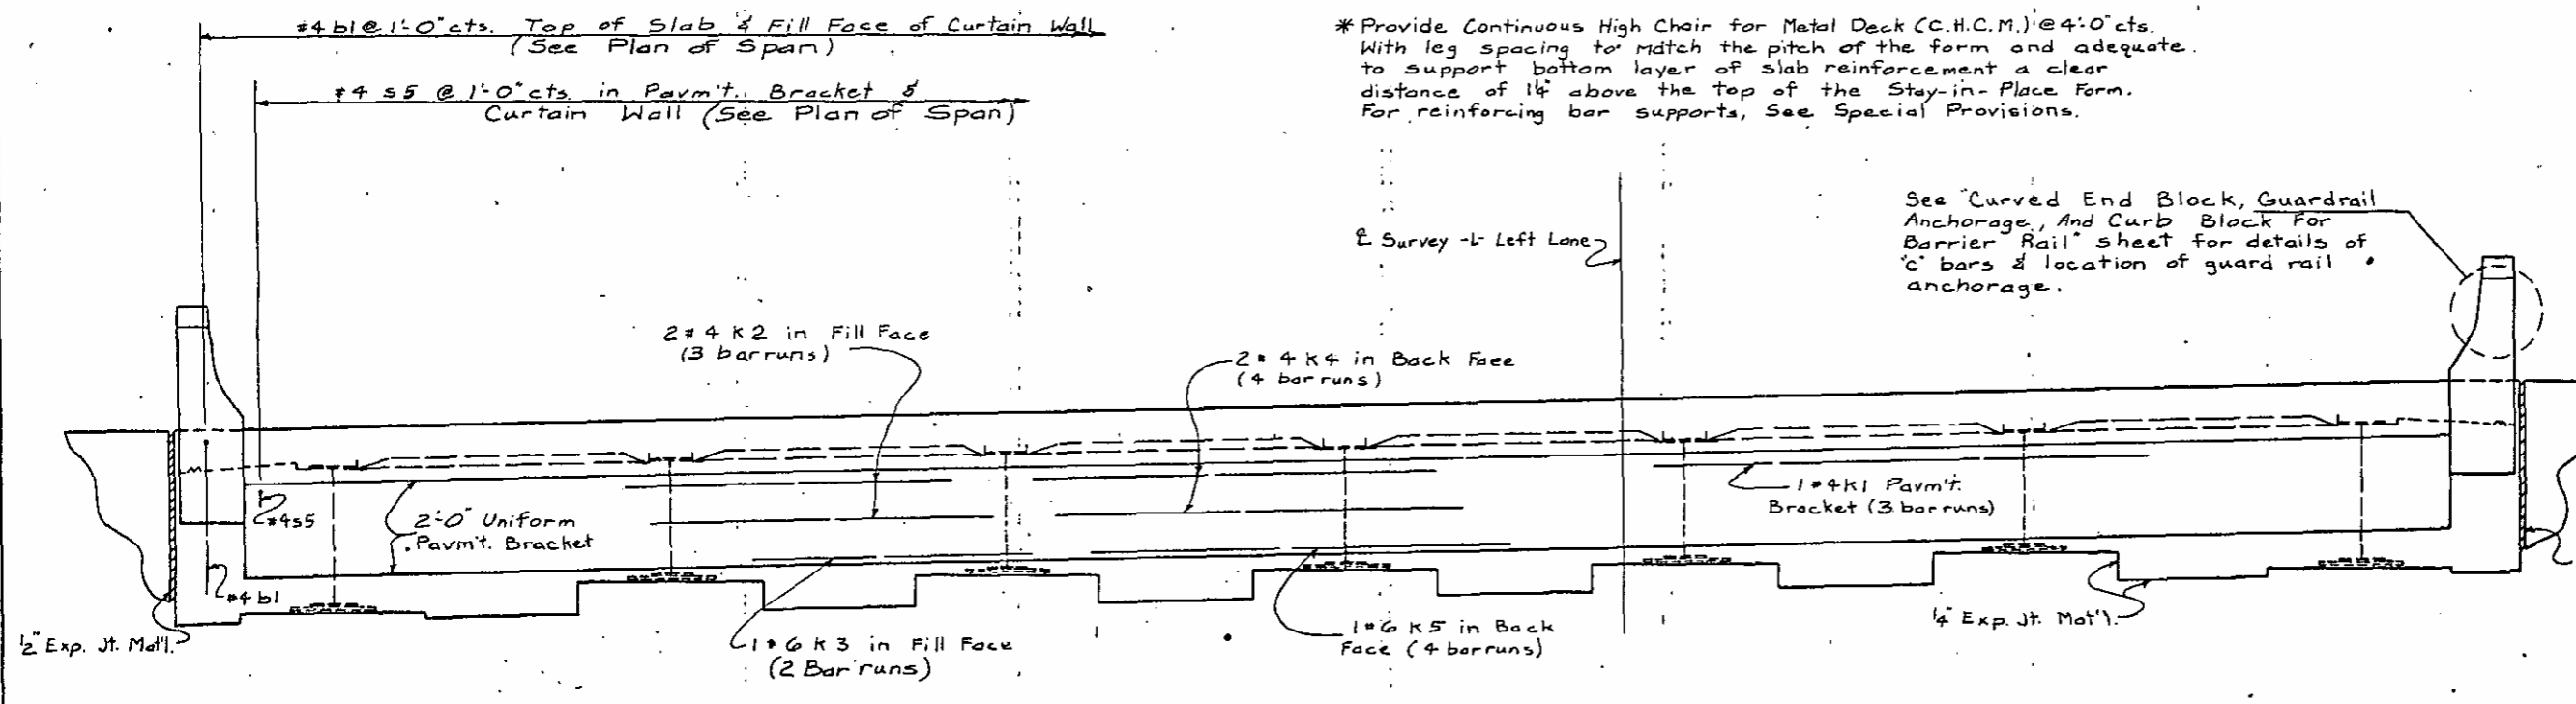 #4 b1 @ 1'-0" cts. Top of Slab & Fill Face of Curtain Wall
(See Plan of Span)
#4 s5 @ 1'-0" cts. in Pavm't. Bracket &
Curtain Wall (See Plan of Span)
* Provide Continuous High Chair for Metal Deck (C.H.C.M.) @ 4'-0" cts.
With leg spacing to match the pitch of the form and adequate
to support bottom layer of slab reinforcement a clear
distance of 1¼" above the top of the Stay-in-Place Form.
For reinforcing bar supports, See Special Provisions.
See "Curved End Block, Guardrail
Anchorage, And Curb Block For
Barrier Rail" sheet for details of
"c" bars & location of guard rail
anchorage.
℄ Survey -L- Left Lane
2 #4 K2 in Fill Face
(3 bar runs)
2 #4 K4 in Back Face
(4 bar runs)
1 #4 K1 Pavm't.
Bracket (3 bar runs)
#4 s5
2'-0" Uniform
Pavm't. Bracket
#4 b1
½" Exp. Jt. Mat'l.
1 #6 K3 in Fill Face
(2 Bar runs)
1 #6 K5 in Back
Face (4 bar runs)
¼" Exp. Jt. Mat'l.